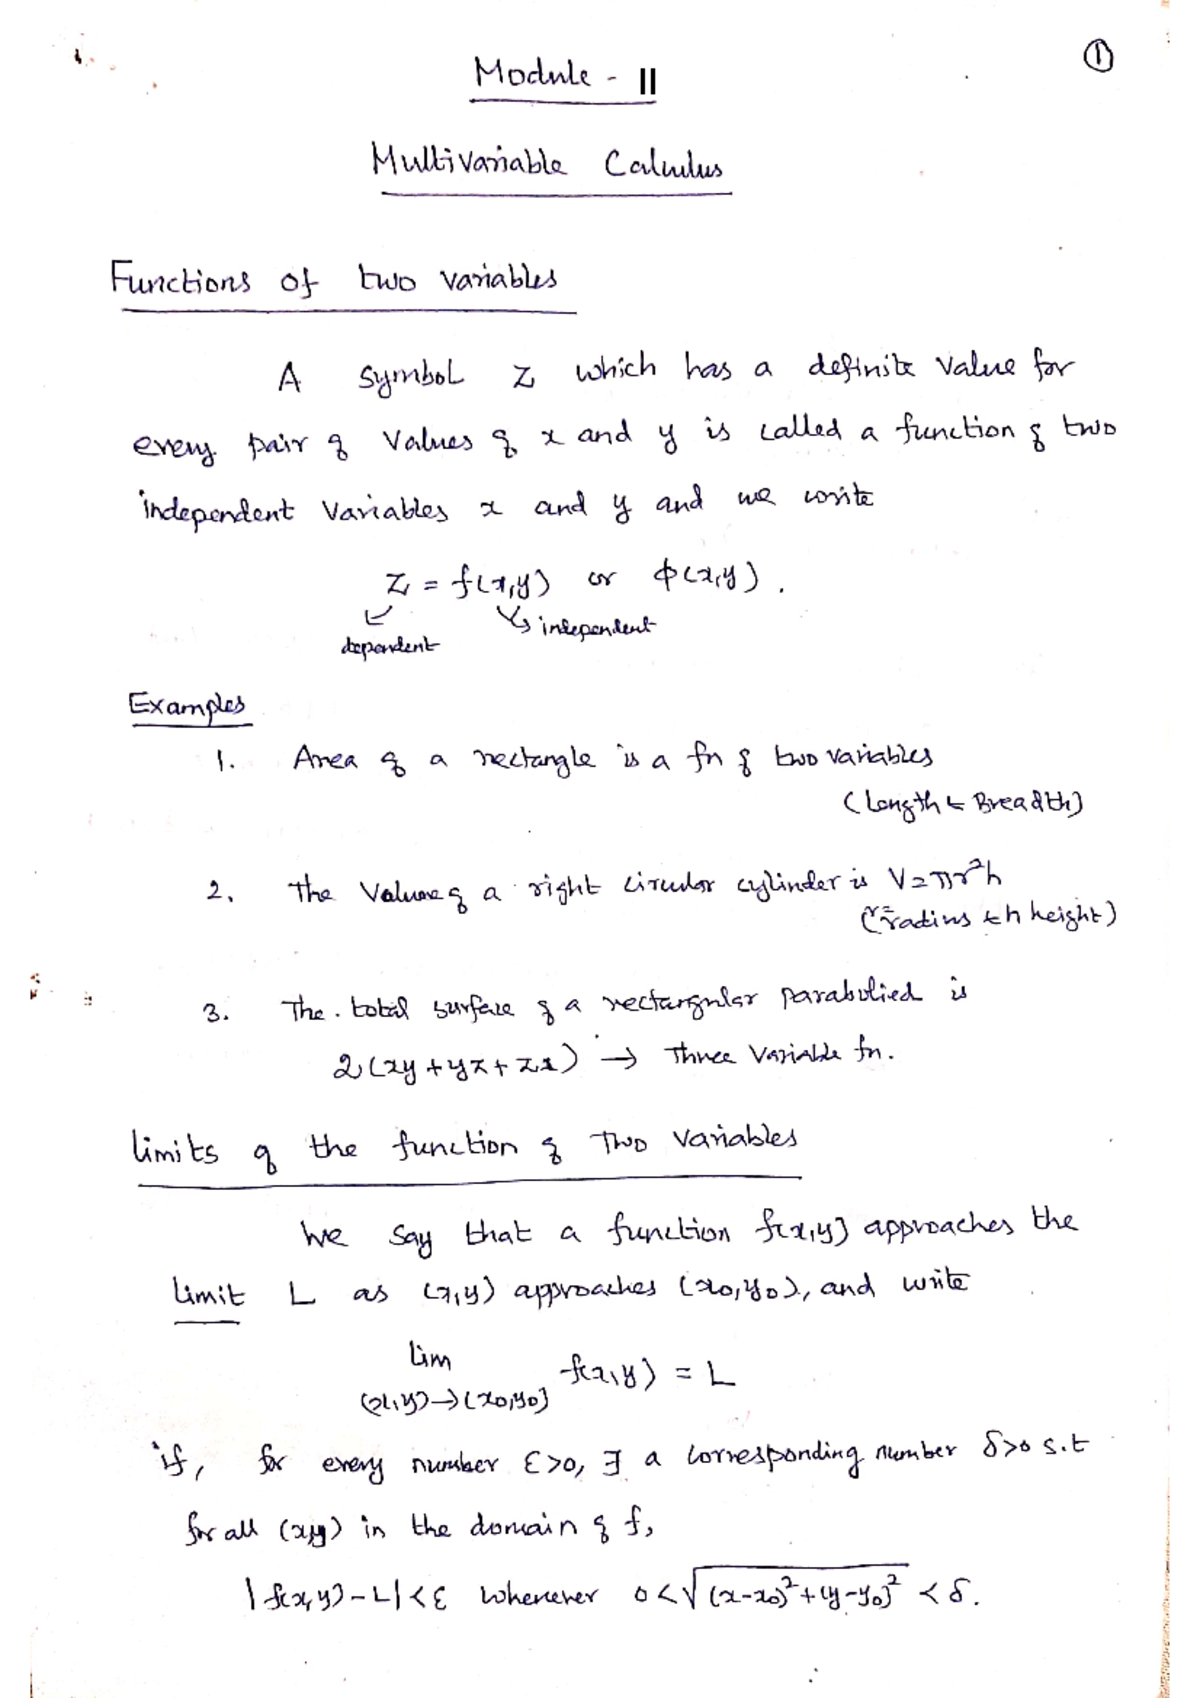 1
Module - II
Multivariable Calculus
Functions of two variables
A symbol z which has a definite value for
every pair of values of x and y is called a function of two
independent variables x and y and we write
z = f(x,y) or φ(x,y).
dependent independent
Examples
1. Area of a rectangle is a fn of two variables
(Length & Breadth)
2. The Volume of a right circular cylinder is V=πr²h
(r=radius & h height)
3. The total surface of a rectangular parabolied is
2(xy+yz+zx) → Three Variable fn.
limits of the function of Two variables
We say that a function f(x,y) approaches the
limit L as (x,y) approaches (x₀,y₀), and write
lim f(x,y) = L
(x,y)→(x₀,y₀)
if, for every number ε>0, ∃ a corresponding number δ>0 s.t
for all (x,y) in the domain of f,
|f(x,y)-L|<ε whenever 0<√(x-x₀)²+(y-y₀)² <δ.